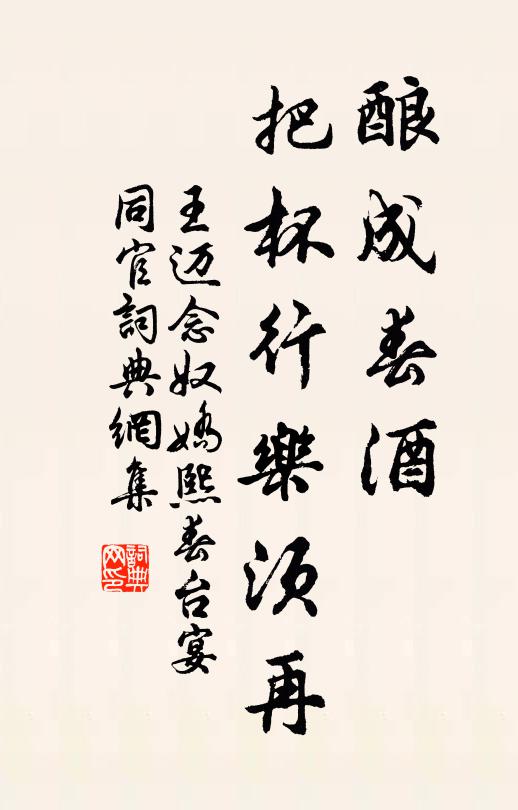 酿成春酒
把杯行樂须再
王迈念奴嬌熙春台宴
同官詞典網集
詞典
网印